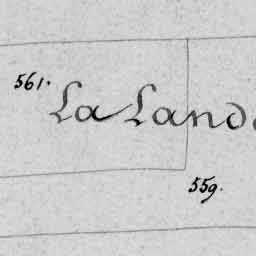 561.
La Lande
559.